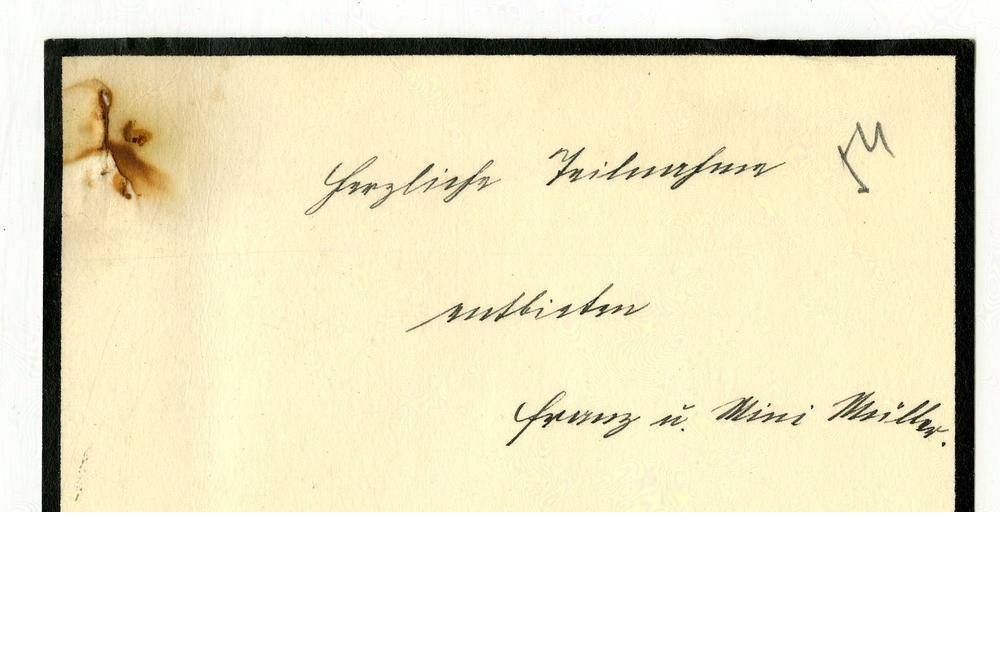 Herzliche Teilnahme
entbieten
Franz u. Mini Müller.